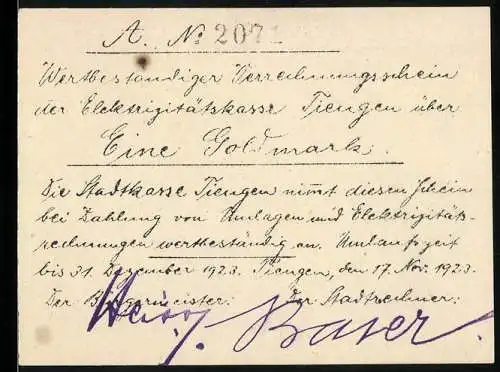 A. № 2071
Wertbeständiger Verrechnungsschein
der Elektrizitätskasse Tiengen über
Eine Goldmark.
Die Stadtkasse Tiengen nimmt diesen Schein
bei Zahlung von Umlagen und Elektrizitäts-
rechnungen wertbeständig an. Umlaufszeit
bis 31. Dezember 1923. Tiengen, den 17. Nov. 1923.
Der Bürgermeister: Der Stadtrechner: